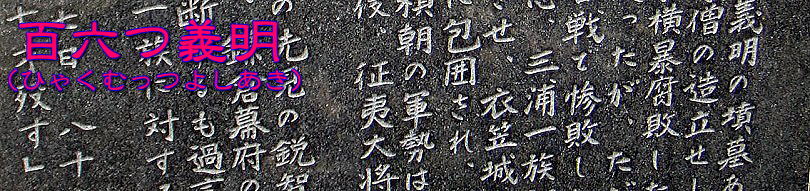 百六つ義明
(ひゃくむっつよしあき)
義明の墳墓
僧の造立せし
横暴腐敗し
ったが、ただ
戦で惨敗し
三浦一族
させ、衣笠城
に包囲され、
頼朝の軍勢は
後、征夷大将
の先見の鋭智
倉幕府の
断 るも過言
一族に対する
八十
す」